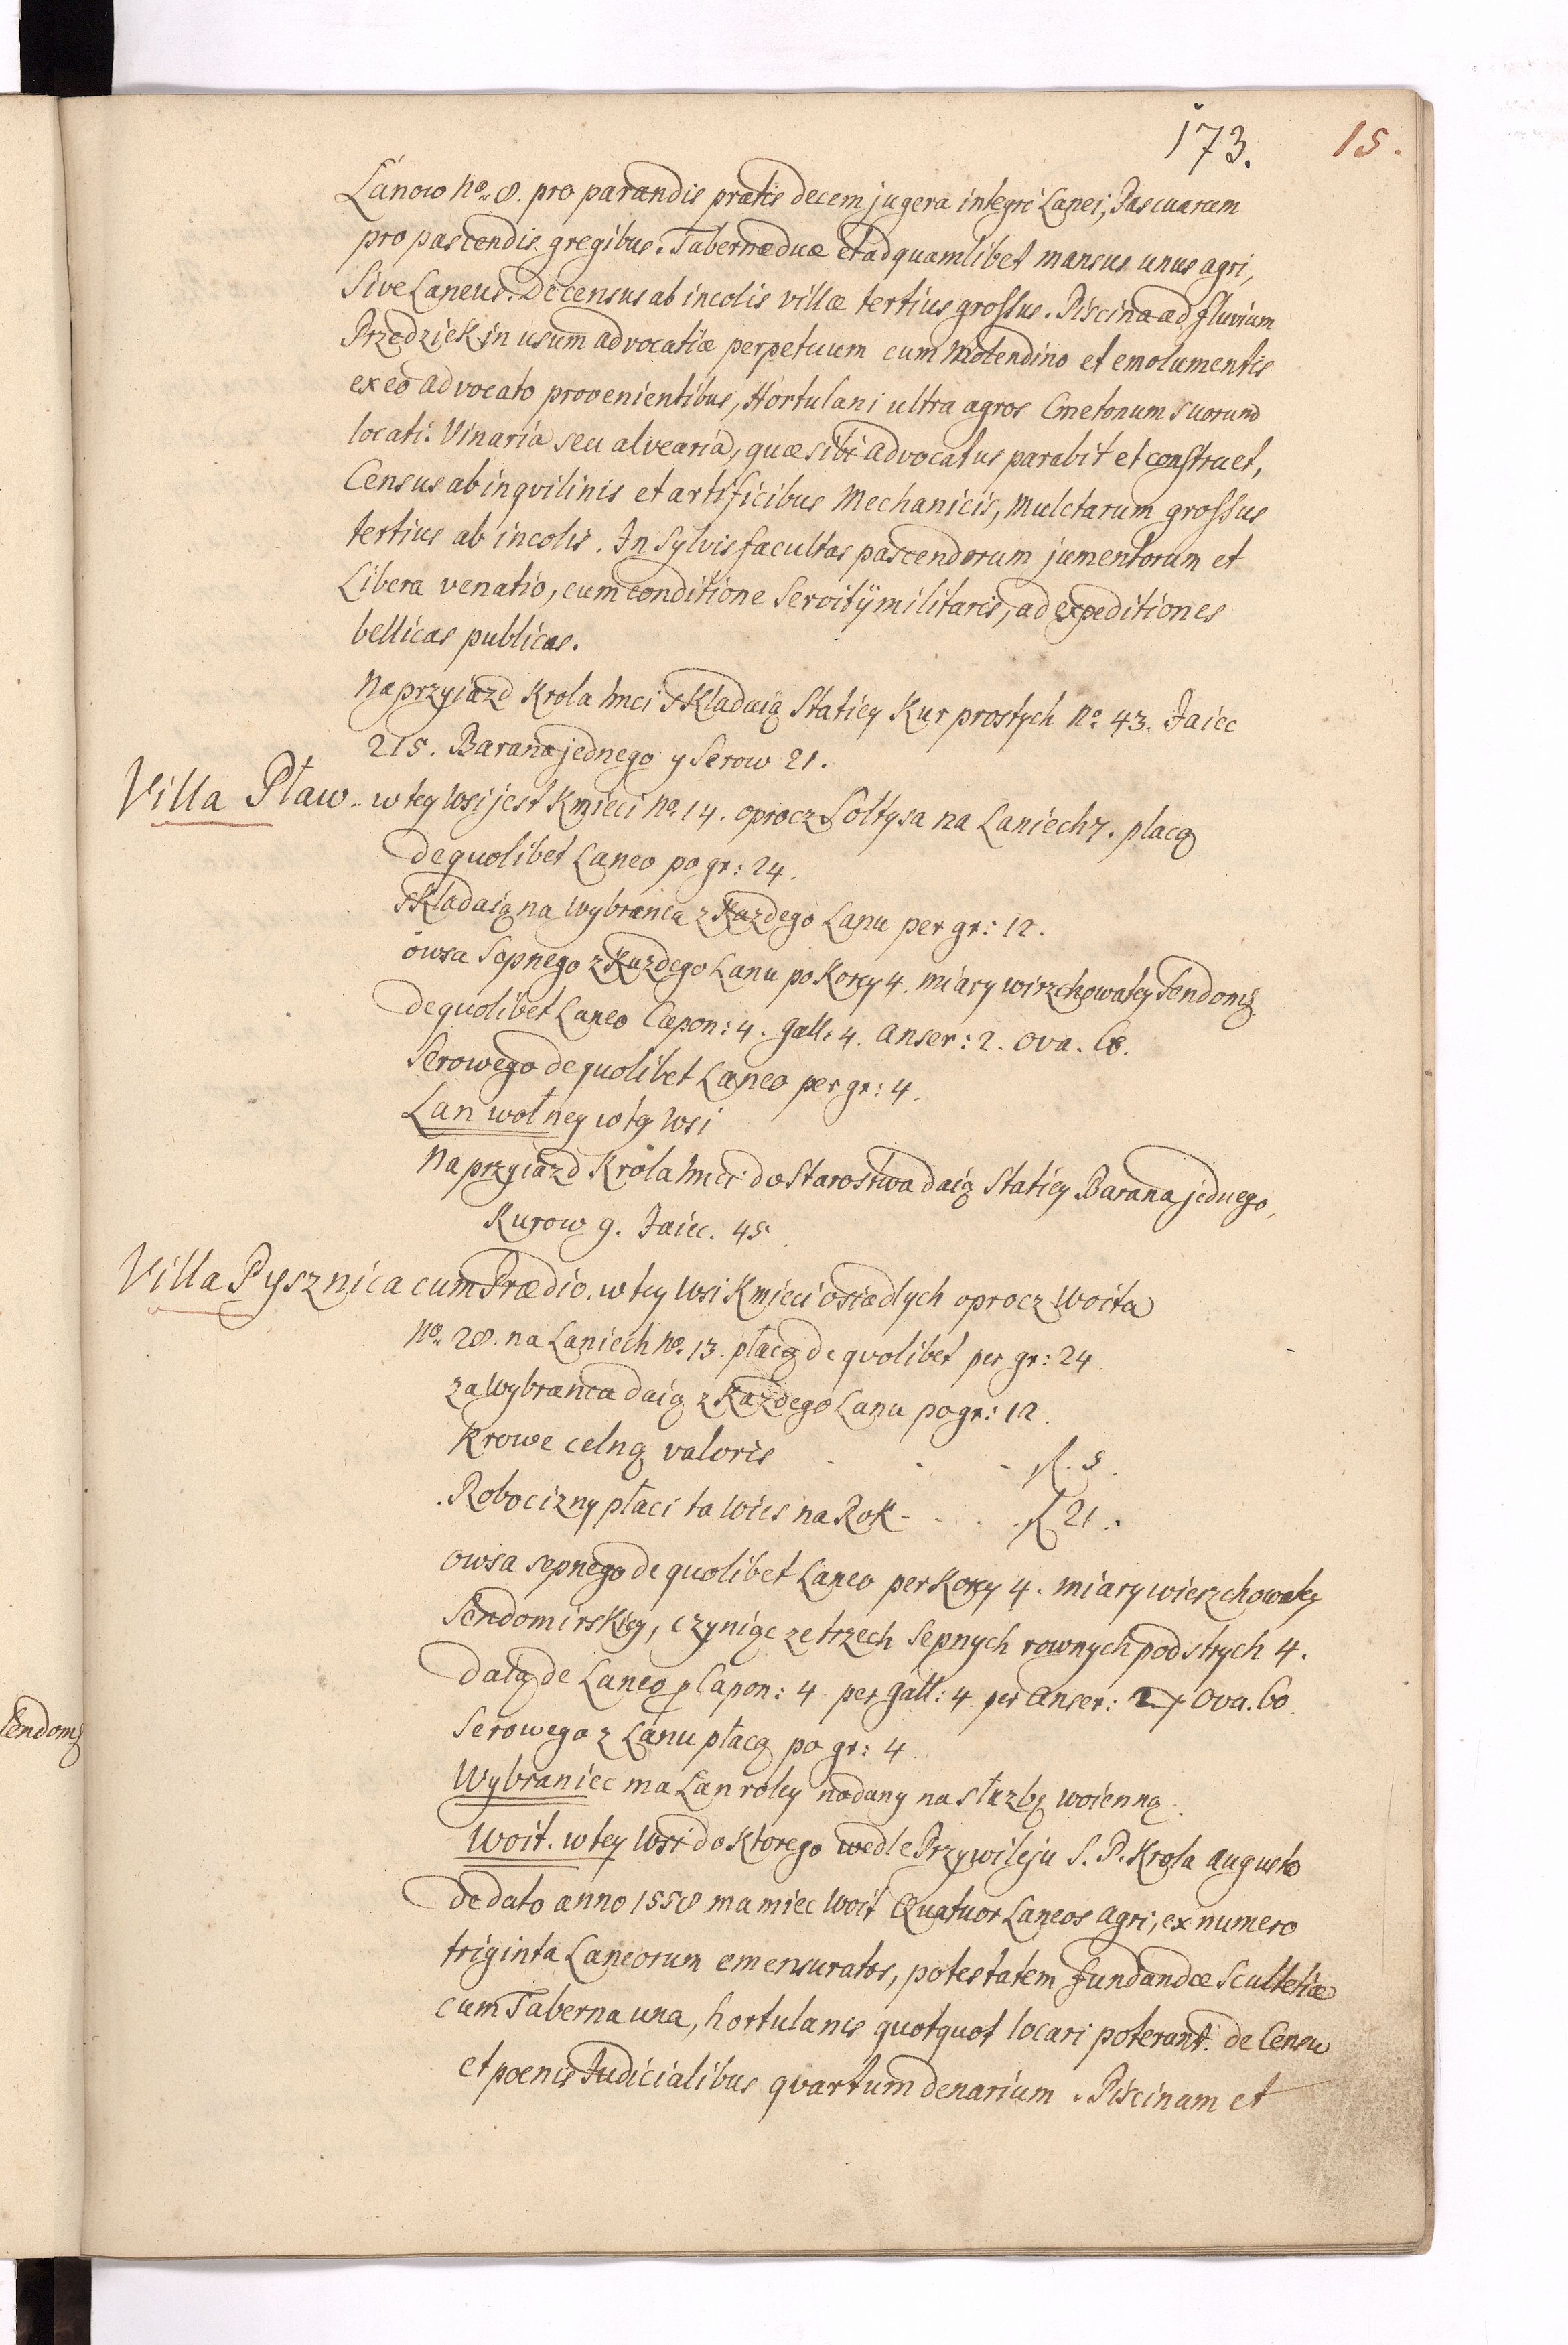 173. 15.
Łanow No. 8. pro parandis pratis decem jugera integri Lanei, Pascuarum
pro pascendis gregibus. Tabernæ duæ et ad quamlibet mansus unus agri,
Sive Laneus. De census ab incolis villæ tertius grossus. Piscina ad fluvium
Przędziek in usum advocatiæ perpetuum cum Molendino et emolumentis
ex eo advocato provenientibus, Hortulani ultra agros Cmetonum suorum
locati. Vinaria seu alvearia, quæ sibi advocatus parabit et construet,
Census ab inqvilinis et artificibus Mechanicis, Mulctarum grossus
tertius ab incolis. In Sylvis facultas pascendorum jumentorum et
Libera venatio, cum conditione Servitÿ militaris, ad expeditiones
bellicas publicas.
Na przyjazd Krola Jmci składaią Statiey Kur prostych No. 43. Jaiec
215. Barana jednego y Serow 21.
Villa Pław. w tey wsi jest Kmieci No. 14. oprocz Sołtysa na Łaniech 7. płacą
de quolibet Laneo po gr: 24.
składaią na Wybranca z Każdego Łanu per gr: 12.
owsa Sepnego z Każdego Lanu po Korcy 4. miary wirzchowatey Sendomẏ
de quolibet Laneo Capon: 4. gall: 4. anser: 2. ova. 60.
Serowego de quolibet Laneo per gr: 4.
Łan wolney w tÿ wsi
Na przyiazd Krola Jmci do Starostwa daią Statiey Barana jednego,
Kurow 9. Jaiec. 45.
Villa Pysznica cum Prædio. w tey Wsi Kmieci osiadłych oprocz Woita
No. 28. na Łaniech No. 13. płacą de qvolibet per gr: 24.
za Wybranca daią z Każdego Łanu po gr: 12.
Krowe celną valoris . . . fl. 5.
Robocizny płaci ta Wies na Rok . . . . fl 21.
owsa sepnego de quolibet Laneo per Korcy 4. miary wierzchowatey
Sendomirskiey, czyniąc ze trzech Sepnych rownych podstrych 4.
daią de Laneo p Capon: 4. per gall: 4. per anser: 2. Ova. 60.
Serowego z Łanu płacą po gr: 4.
Wybraniec ma Łan roley nadany na służbę woienną.
Woit. w tey Wsi do Ktorego wedle Przywileju S. P. Krola augusta
de dato anno 1558 ma miec Woit Quatuor Laneos agri, ex numero
triginta Laneorum emensuratos, potestatem fundandæ Scultetiæ
cum Taberna una, hortulanis quotquot locari poterant. de Censu
et poenis Judicialibus qvartum denarium. Piscinam et
Sendomẏ